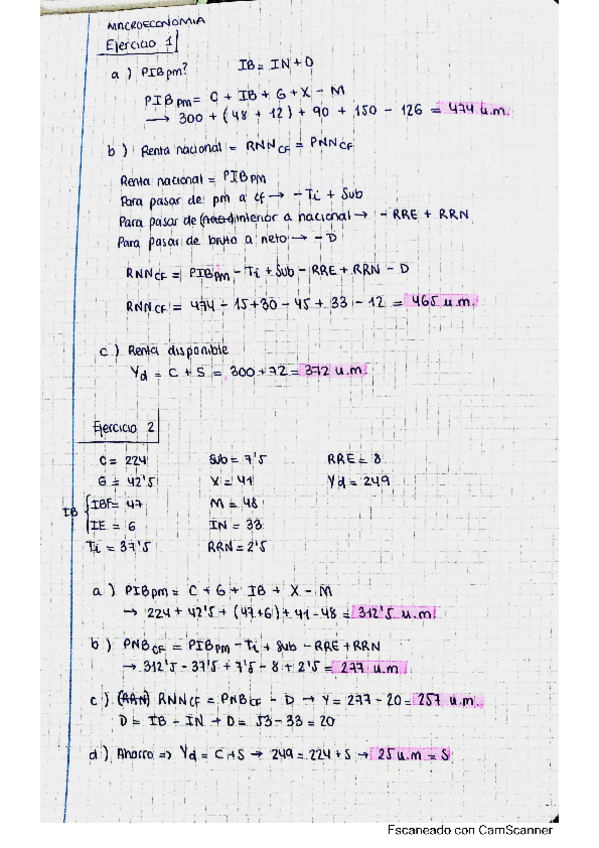 MACROECONOMIA
Ejercicio 1
a) PIBpm? IB = IN + D
PIBpm = C + IB + G + X - M
→ 300 + (48 + 12) + 90 + 150 - 126 = 474 u.m.
b) Renta nacional = RNNCF = PNNCF
Renta nacional = PIBPM
Para pasar de pm a cf → - Ti + Sub
Para pasar de interior a nacional → - RRE + RRN
Para pasar de bruto a neto → - D
RNNCF = PIBpm - Ti + Sub - RRE + RRN - D
RNNCF = 474 - 15 + 30 - 45 + 33 - 12 = 465 u.m.
c) Renta disponible
Yd = C + S = 300 + 72 = 372 u.m.
Ejercicio 2
C = 224 Sub = 7'5 RRE = 8
G = 42'5 X = 41 Yd = 249
IB { IBF = 47 M = 48
IE = 6 IN = 33
Ti = 37'5 RRN = 2'5
a) PIBpm = C + G + IB + X - M
→ 224 + 42'5 + (47+6) + 41 - 48 = 312'5 u.m
b) PNBCF = PIBpm - Ti + Sub - RRE + RRN
→ 312'5 - 37'5 + 7'5 - 8 + 2'5 = 277 u.m
c) (RRN) RNNCF = PNBCF - D → Y = 277 - 20 = 257 u.m.
D = IB - IN → D = 53 - 33 = 20
d) Ahorro => Yd = C + S → 249 = 224 + S → 25 u.m = S
Escaneado con CamScanner